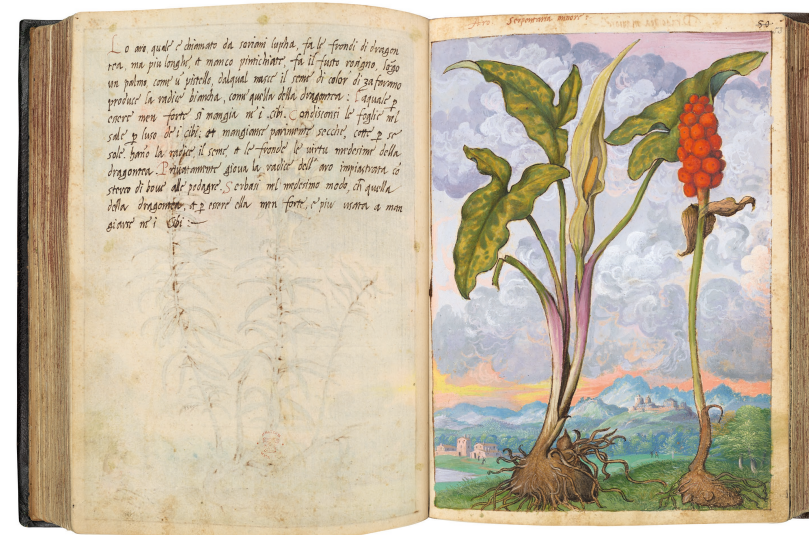 Lo aro, quale e chiamato da soriani lupha, fa le frondi di dragon
tea, ma piu longhe, et manco pintichiate, fa il fusto rongno, lõgo
un palmo, come u pistello, dalqual nasce il seme di color di zafarano
produce la radice biancha, come quella della dragontea: Laquale p
essere men forte si mangia ne i cibi. Condisconsi le foglie nel
sale p luso de i cibi, et mangianse parimente secche, cotte p se
sole. hano la radice il seme et le fronde le virtu medesime della
dragontea. Privatamente giova la radice dell' aro impiastrata cõ
sterco di boue alle podagre. Serbasi nel medesimo modo, ch quella
della dragontea, et p essere ella men forte, e piu usata a man
giare ne i Cibi:
Aro. Serpentaria minore
59.